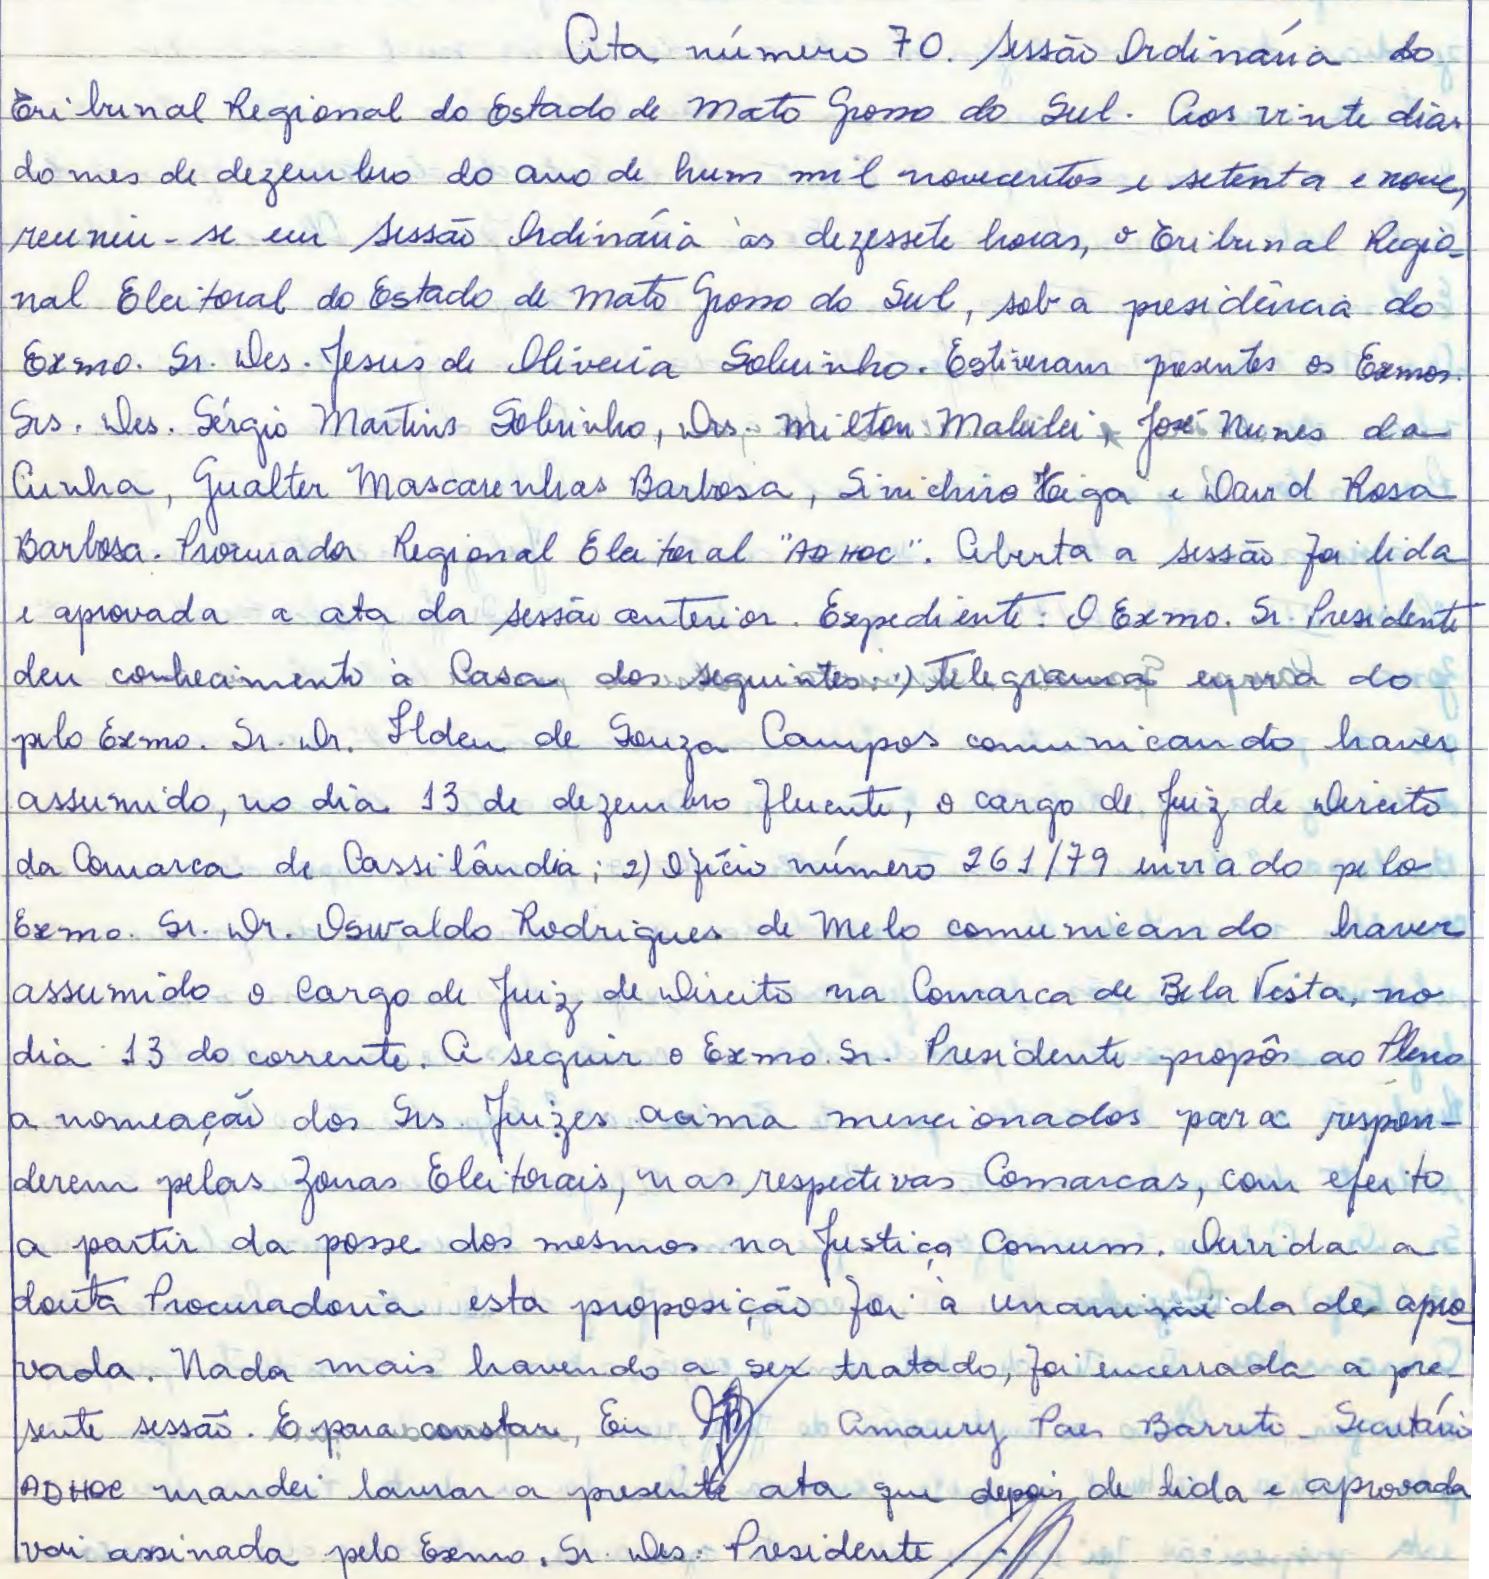 Ata número 70. Sessão Ordinária do
Tribunal Regional do Estado de Mato Grosso do Sul. Aos vinte dias
do mes de dezembro do ano de hum mil novecentos e setenta e nove,
reuniu-se em Sessão Ordinária às dezessete horas, o Tribunal Regio-
nal Eleitoral do Estado de Mato Grosso do Sul, sob a presidência do
Exmo. Sr. Des. Jesus de Oliveira Sobrinho. Estiveram presentes os Exmos.
Srs. Des. Sérgio Martins Sobrinho, Drs. Milton Malulei, José Nunes da
Cunha, Gualter Mascarenhas Barbosa, Sinichiro Higa e David Rosa
Barbosa. Procurador Regional Eleitoral "AD HOC". Aberta a sessão foi lida
e aprovada a ata da sessão anterior. Expediente: O Exmo. Sr. Presidente
deu conhecimento à Casa dos seguintes: 1) Telegrama enviado do
pelo Exmo. Sr. Dr. Ilden de Souza Campos comunicando haver
assumido, no dia 13 de dezembro fluente, o cargo de Juiz de Direito
da Comarca de Cassilândia; 2) Ofício número 261/79 enviado pelo
Exmo. Sr. Dr. Oswaldo Rodrigues de Melo comunicando haver
assumido o cargo de Juiz de Direito na Comarca de Bela Vista, no
dia 13 do corrente. A seguir o Exmo. Sr. Presidente propôs ao Pleno
a nomeação dos Srs. Juizes acima mencionados para respon-
derem pelas Zonas Eleitorais, nas respectivas Comarcas, com efeito
a partir da posse dos mesmos na Justiça Comum. Ouvida a
douta Procuradoria esta proposição foi à unanimidade apro
vada. Nada mais havendo a ser tratado, foi encerrada a pre-
sente sessão. E para constar, Eu Amaury Paes Barreto - Secretário
AD HOC mandei lavrar a presente ata que depois de lida e aprovada
vai assinada pelo Exmo. Sr. Des. Presidente